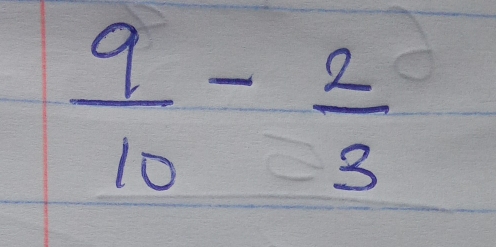 9/10 - 2/3